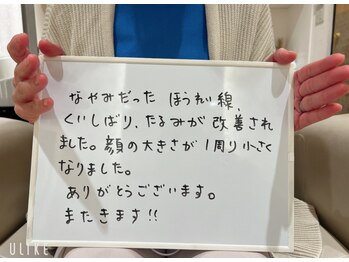 なやみだった ほうれい線、
くいしばり、たるみが 改善され
ました。顔の大きさが 1周り小さく
なりました。
ありがとうございます。
またきます!!
ULIKE